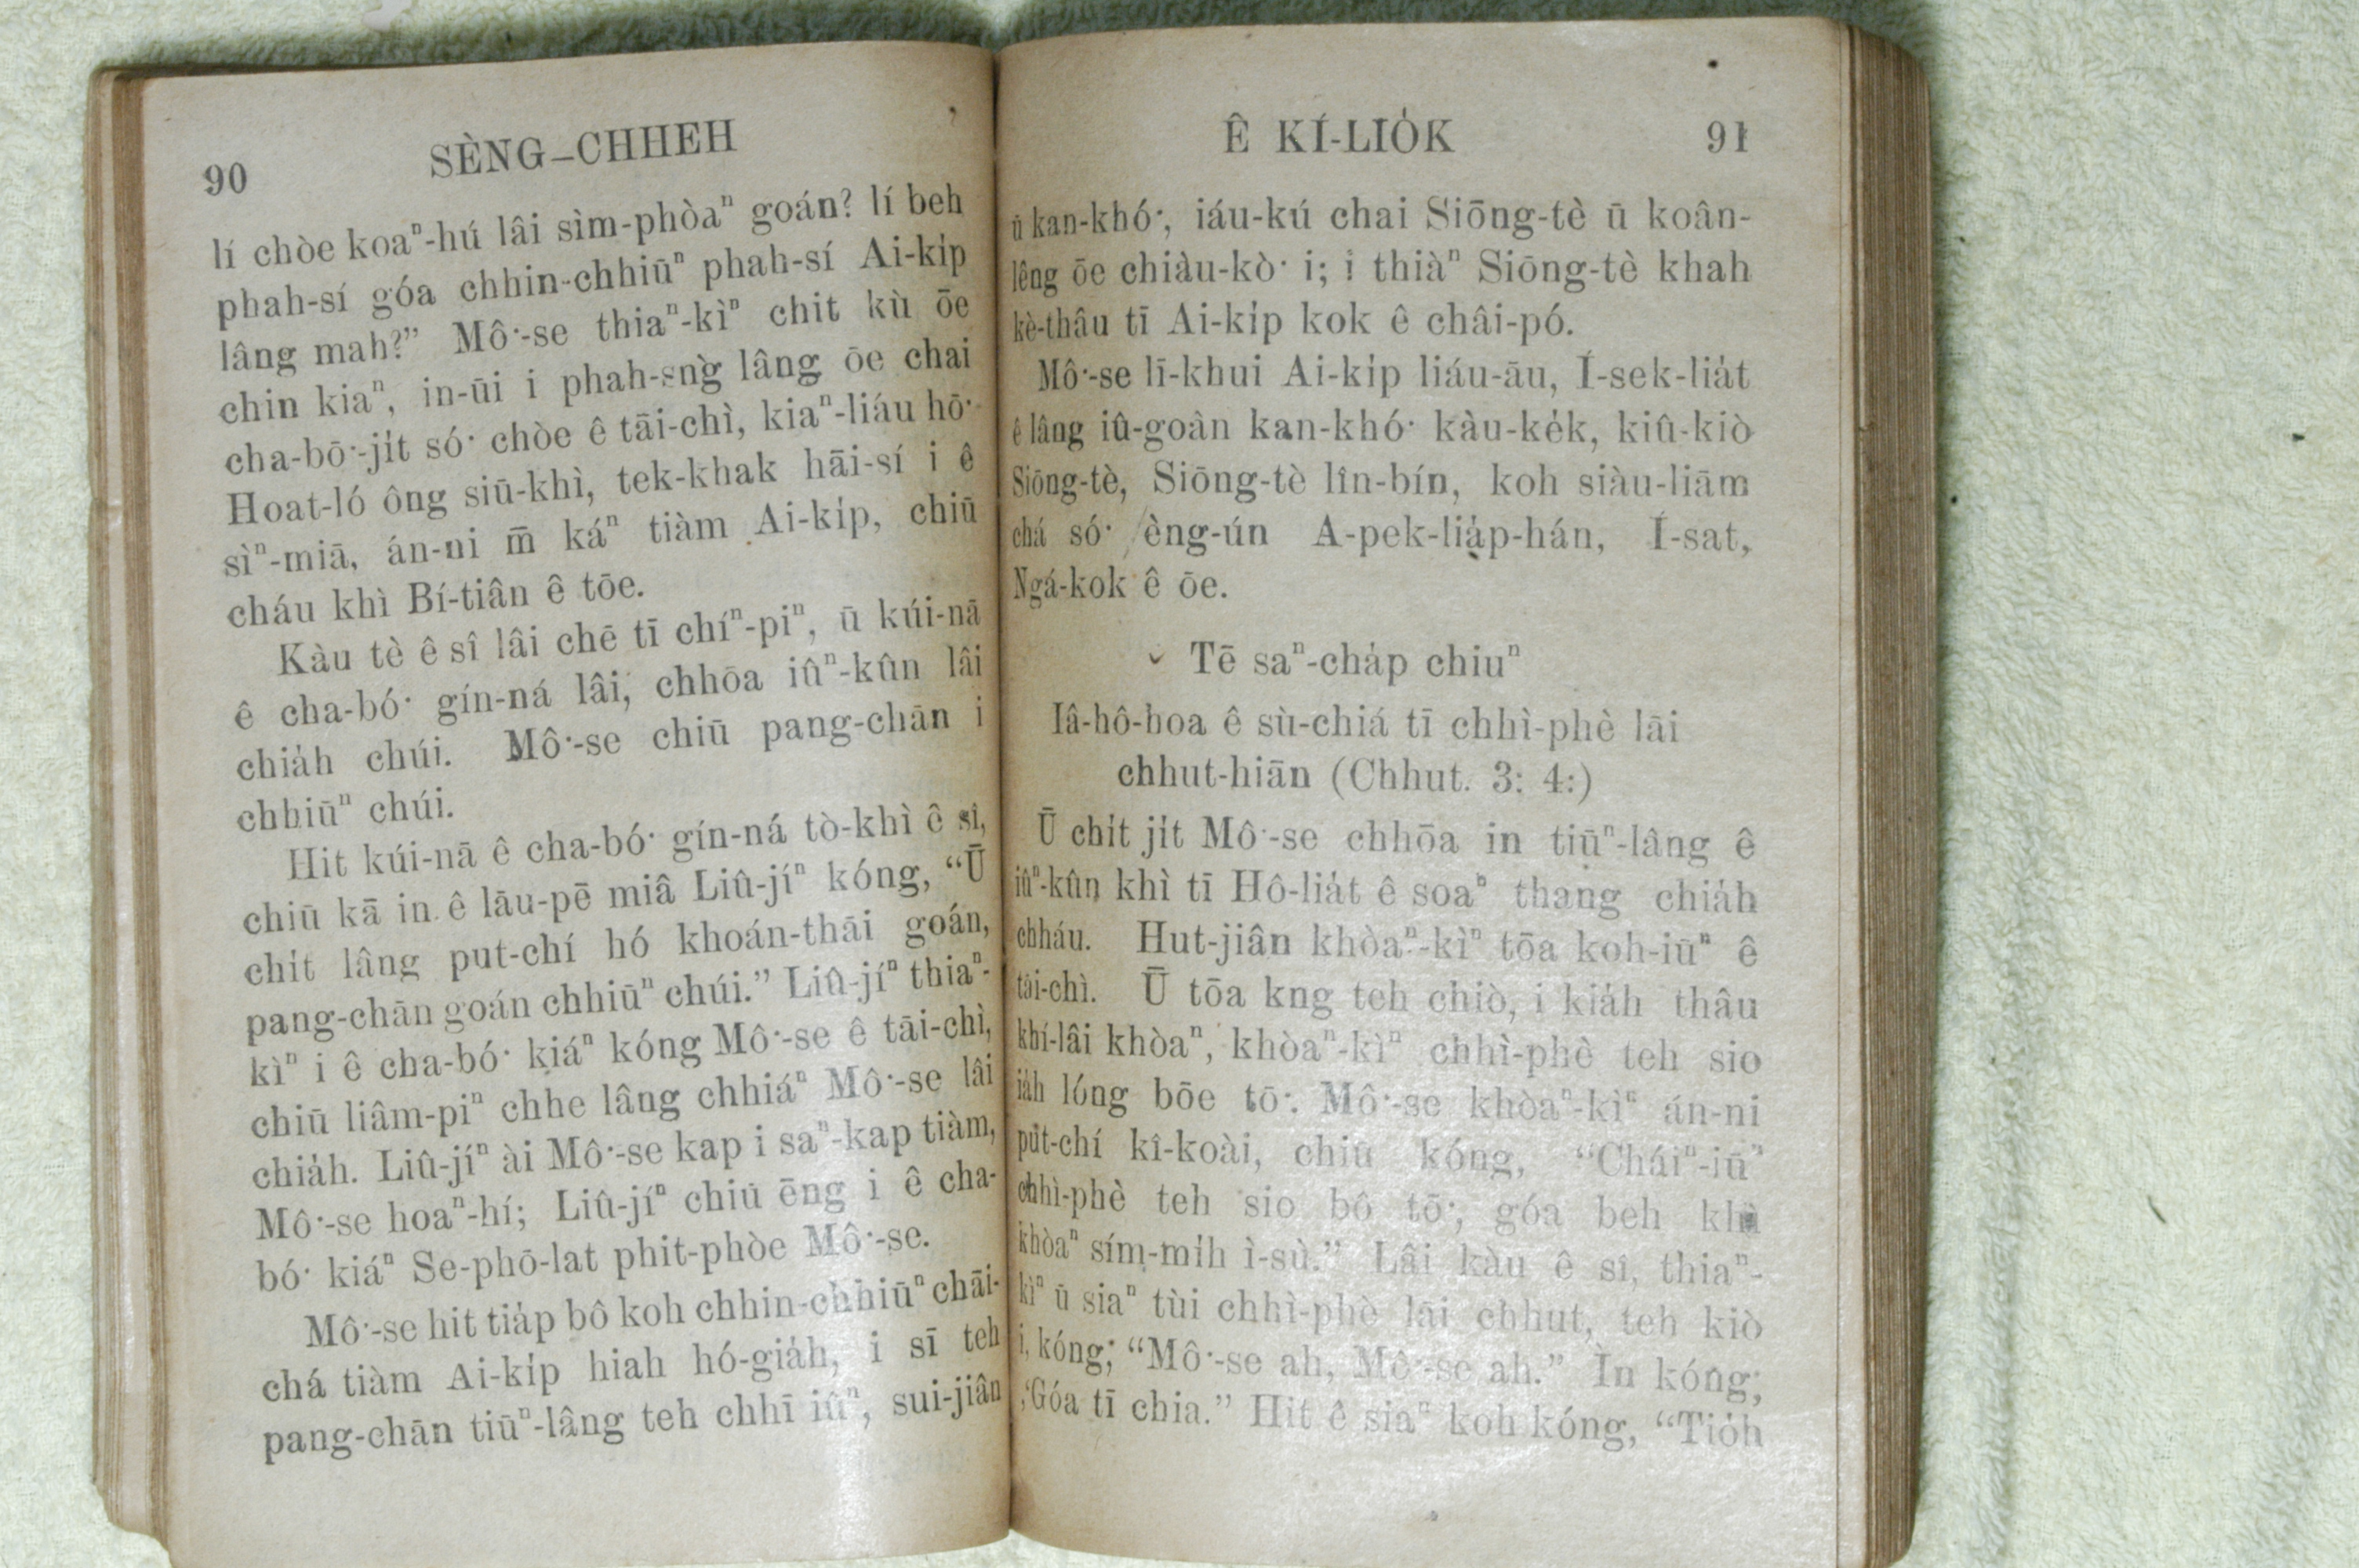 90
SÈNG-CHHEH
lí chòe koaⁿ-hú lâi sìm-phòaⁿ goán? lí beh
phah-sí góa chhin-chhiūⁿ phah-sí Ai-ki̍p
lâng mah?” Mô͘-se thiaⁿ-kìⁿ chit kù ōe
chin kiaⁿ, in-ūi i phah-sǹg lâng ōe chai
cha-bō͘-ji̍t só͘ chòe ê tāi-chì, kiaⁿ-liáu hō͘
Hoat-ló ông siū-khì, tek-khak hāi-sí i ê
sìⁿ-miā, án-ni m̄ káⁿ tiàm Ai-ki̍p, chiū
cháu khì Bí-tiân ê tōe.
Kàu tè ê sî lâi chē tī chíⁿ-piⁿ, ū kúi-nā
ê cha-bó͘ gín-ná lâi, chhōa iûⁿ-kûn lâi
chia̍h chúi. Mô͘-se chiū pang-chān i
chhiūⁿ chúi.
Hit kúi-nā ê cha-bó͘ gín-ná tò-khì ê sî,
chiū kā in ê lāu-pē miâ Liû-jíⁿ kóng, “Ū
chi̍t lâng put-chí hó khoán-thāi goán,
pang-chān goán chhiūⁿ chúi.” Liû-jíⁿ thiaⁿ-
kìⁿ i ê cha-bó͘ kiáⁿ kóng Mô͘-se ê tāi-chì,
chiū liâm-piⁿ chhe lâng chhiáⁿ Mô͘-se lâi
chia̍h. Liû-jíⁿ ài Mô͘-se kap i saⁿ-kap tiàm,
Mô͘-se hoaⁿ-hí; Liû-jíⁿ chiū ēng i ê cha-
bó͘ kiáⁿ Se-phō-lat phit-phòe Mô͘-se.
Mô͘-se hit tia̍p bô koh chhin-chhiūⁿ chāi-
chá tiàm Ai-ki̍p hiah hó-gia̍h, i sī teh
pang-chān tiūⁿ-lâng teh chhī iûⁿ, sui-jiân
Ê KÍ-LIO̍K
91
ū kan-khó͘, iáu-kú chai Siōng-tè ū koân-
lêng ōe chiàu-kò͘ i; i thiàⁿ Siōng-tè khah
kè-thâu tī Ai-ki̍p kok ê châi-pó.
Mô͘-se lī-khui Ai-ki̍p liáu-āu, Í-sek-lia̍t
ê lâng iû-goân kan-khó͘ kàu-ke̍k, kiû-kiò
Siōng-tè, Siōng-tè lîn-bín, koh siàu-liām
chá só͘ èng-ún A-pek-lia̍p-hán, Í-sat,
Ngá-kok ê ōe.
Tē saⁿ-cha̍p chiuⁿ
Iâ-hô-hoa ê sù-chiá tī chhì-phè lāi
chhut-hiān (Chhut. 3: 4:)
Ū chi̍t ji̍t Mô͘-se chhōa in tiūⁿ-lâng ê
iûⁿ-kûn khì tī Hô-lia̍t ê soaⁿ thang chia̍h
chháu. Hut-jiân khòaⁿ-kìⁿ tōa koh-iūⁿ ê
tāi-chì. Ū tōa kng teh chiò, i kia̍h thâu
khí-lâi khòaⁿ, khòaⁿ-kìⁿ chhì-phè teh sio
ia̍h lóng bōe tō͘. Mô͘-se khòaⁿ-kìⁿ án-ni
pu̍t-chí kî-koài, chiū kóng, “Cháiⁿ-iūⁿ
chhì-phè teh sio bô tō͘, góa beh khì
khòaⁿ sím-mi̍h ì-sù.” Lâi kàu ê sî, thiaⁿ-
kìⁿ ū siaⁿ tùi chhì-phè lāi chhut, teh kiò
i, kóng; “Mô͘-se ah, Mô͘-se ah.” Ìn kóng;
“Góa tī chia.” Hit ê siaⁿ koh kóng, “Tio̍h